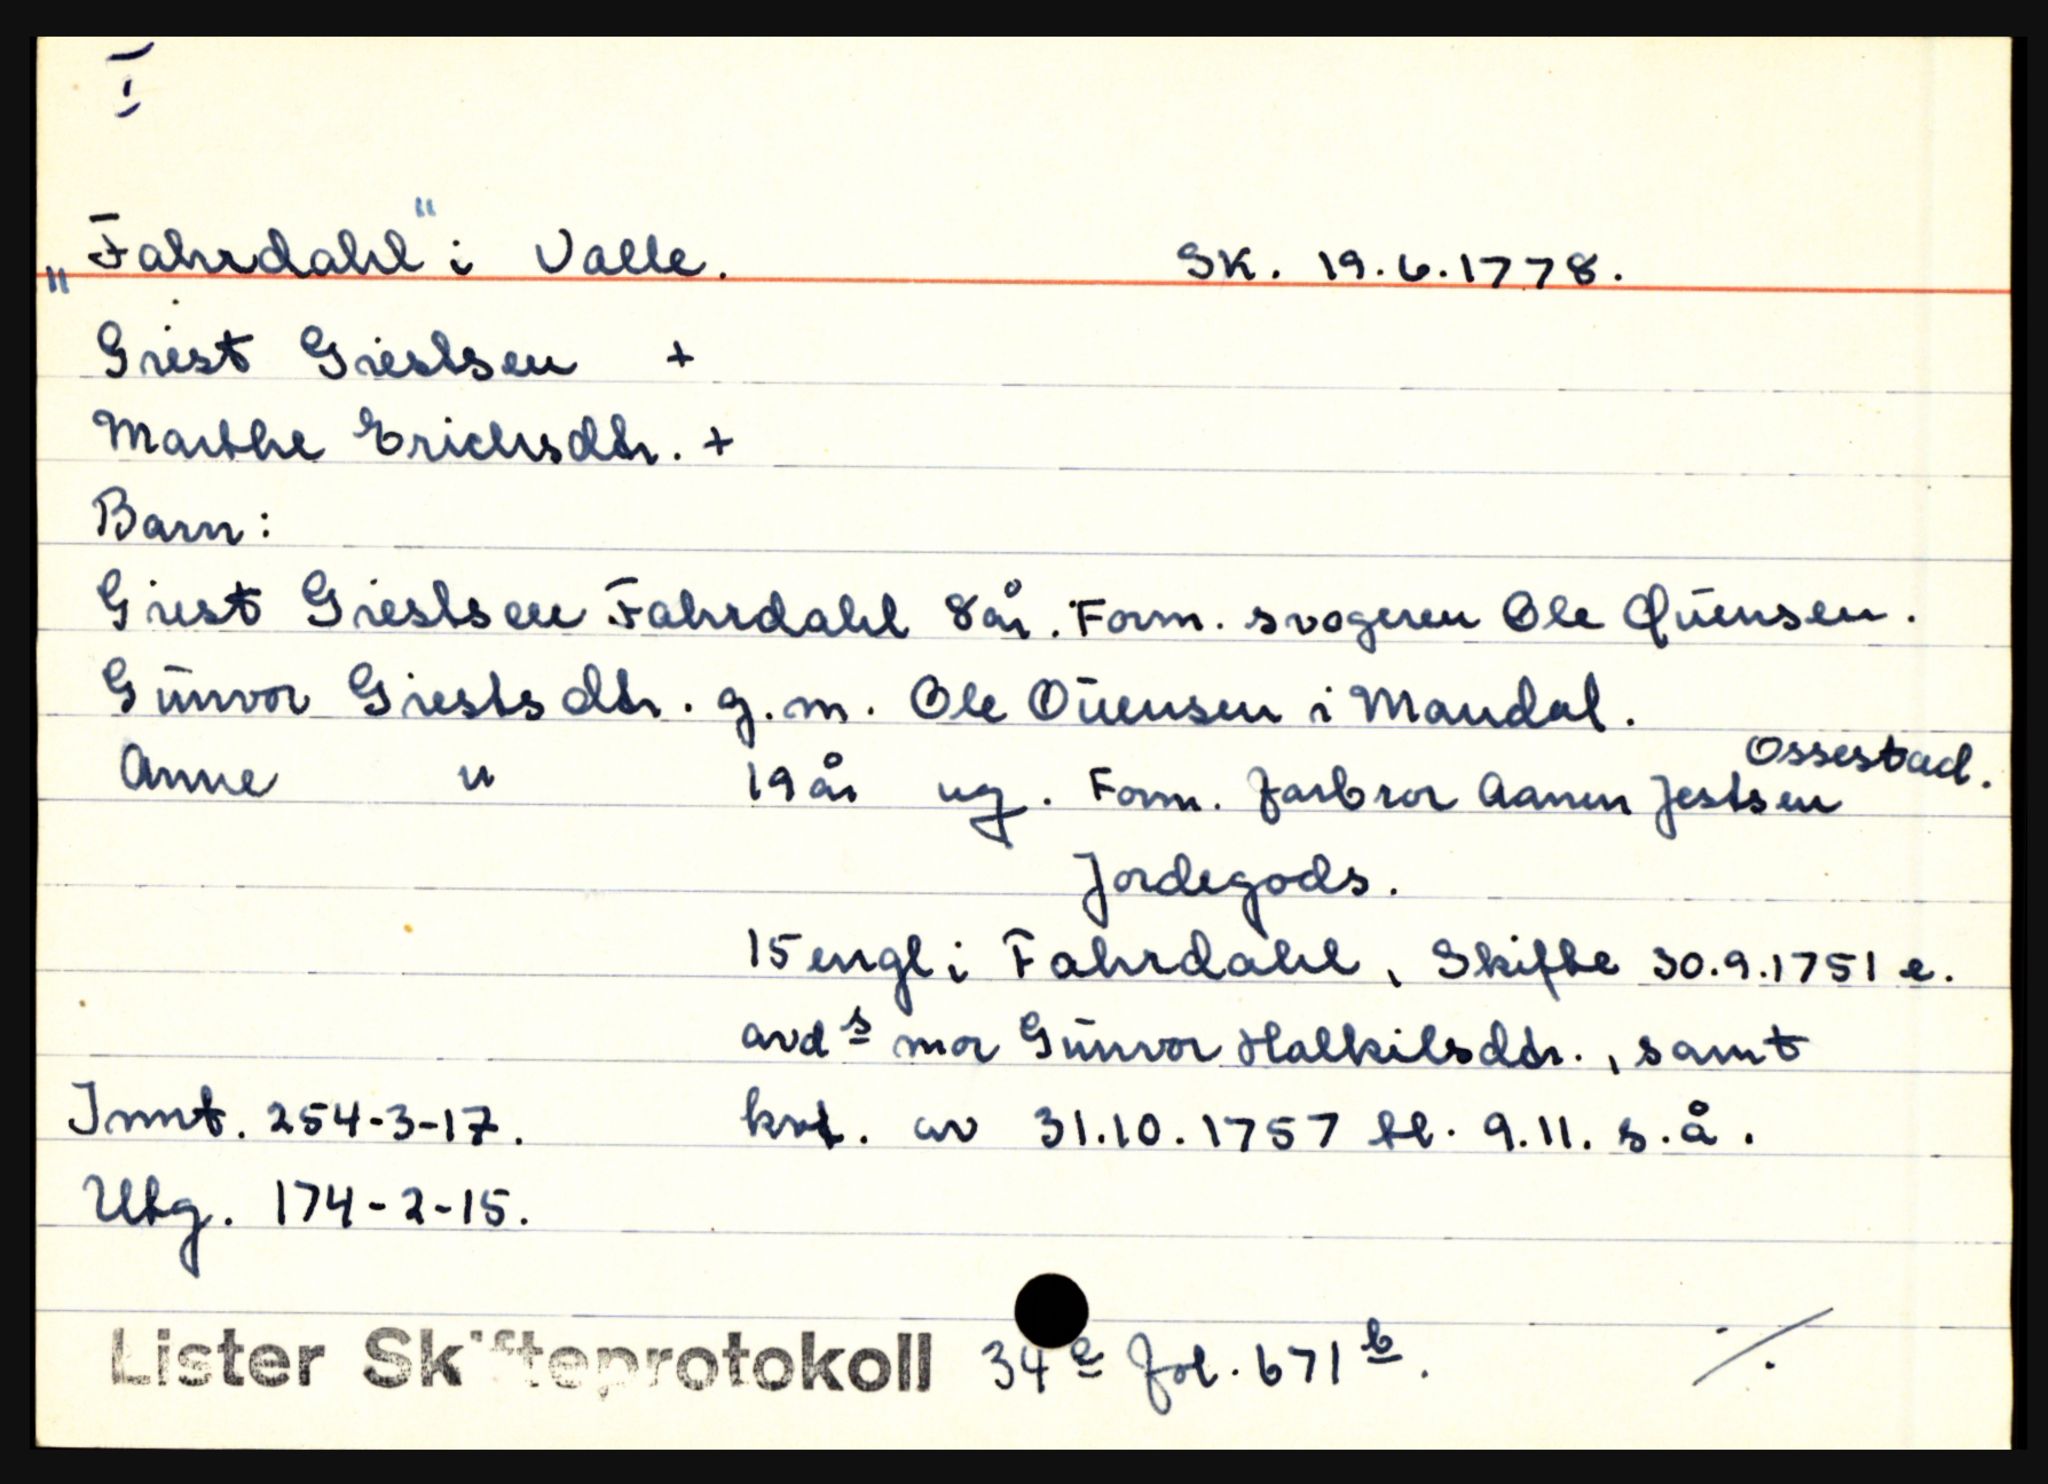 I
"Fahrdahl" i Valle. Sk. 19.6.1778.
Giest Giestsen +
Marthe Erichsdtr. +
Barn:
Giest Giestsen Fahrdahl 8 år. Form. svogeren Ole Ovensen.
Gunvor Giestsdtr. g.m. Ole Ouensen i Mandal.
Ossestad.
Anne " 19 år ug. Form. farbror Aanen Jestsen
Jordegods.
15 engl i Fahrdahl, Skifte 30.9.1751 e.
avds mor Gunvor Halkilsdtr., samt
Innt. 254-3-17. kvt. av 31.10.1757 tl. 9.11. s.å.
Utg. 174-2-15.
Lister Skifteprotokoll 34 e fol. 671 b.